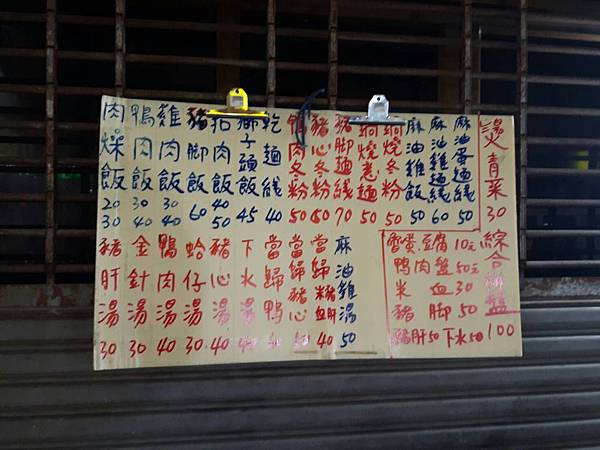 肉燥飯 20 30
鴨肉飯 30 40
雞肉飯 30 40
豬腳飯 60
扣肉飯 40 50
獅子頭飯 45
乾麵線 40
鴨肉冬粉 50
豬心冬粉 60
豬腳麵線 70
鍋燒意麵 50
鍋燒冬粉 50
麻油雞飯 50
麻油雞麵線 60
麻油蛋麵線 50
燙青菜 30 綜合拼盤 100
豬肝湯 30
金針湯 30
鴨肉湯 40
蛤仔湯 30
豬心湯 40
下水湯 40
當歸鴨 40
當歸豬心 50
當歸豬血肝 40
麻油雞湯 50
蛋.豆腐 10元
鴨肉盤 50元
米血 30
豬腳 50
豬肝50 下水50